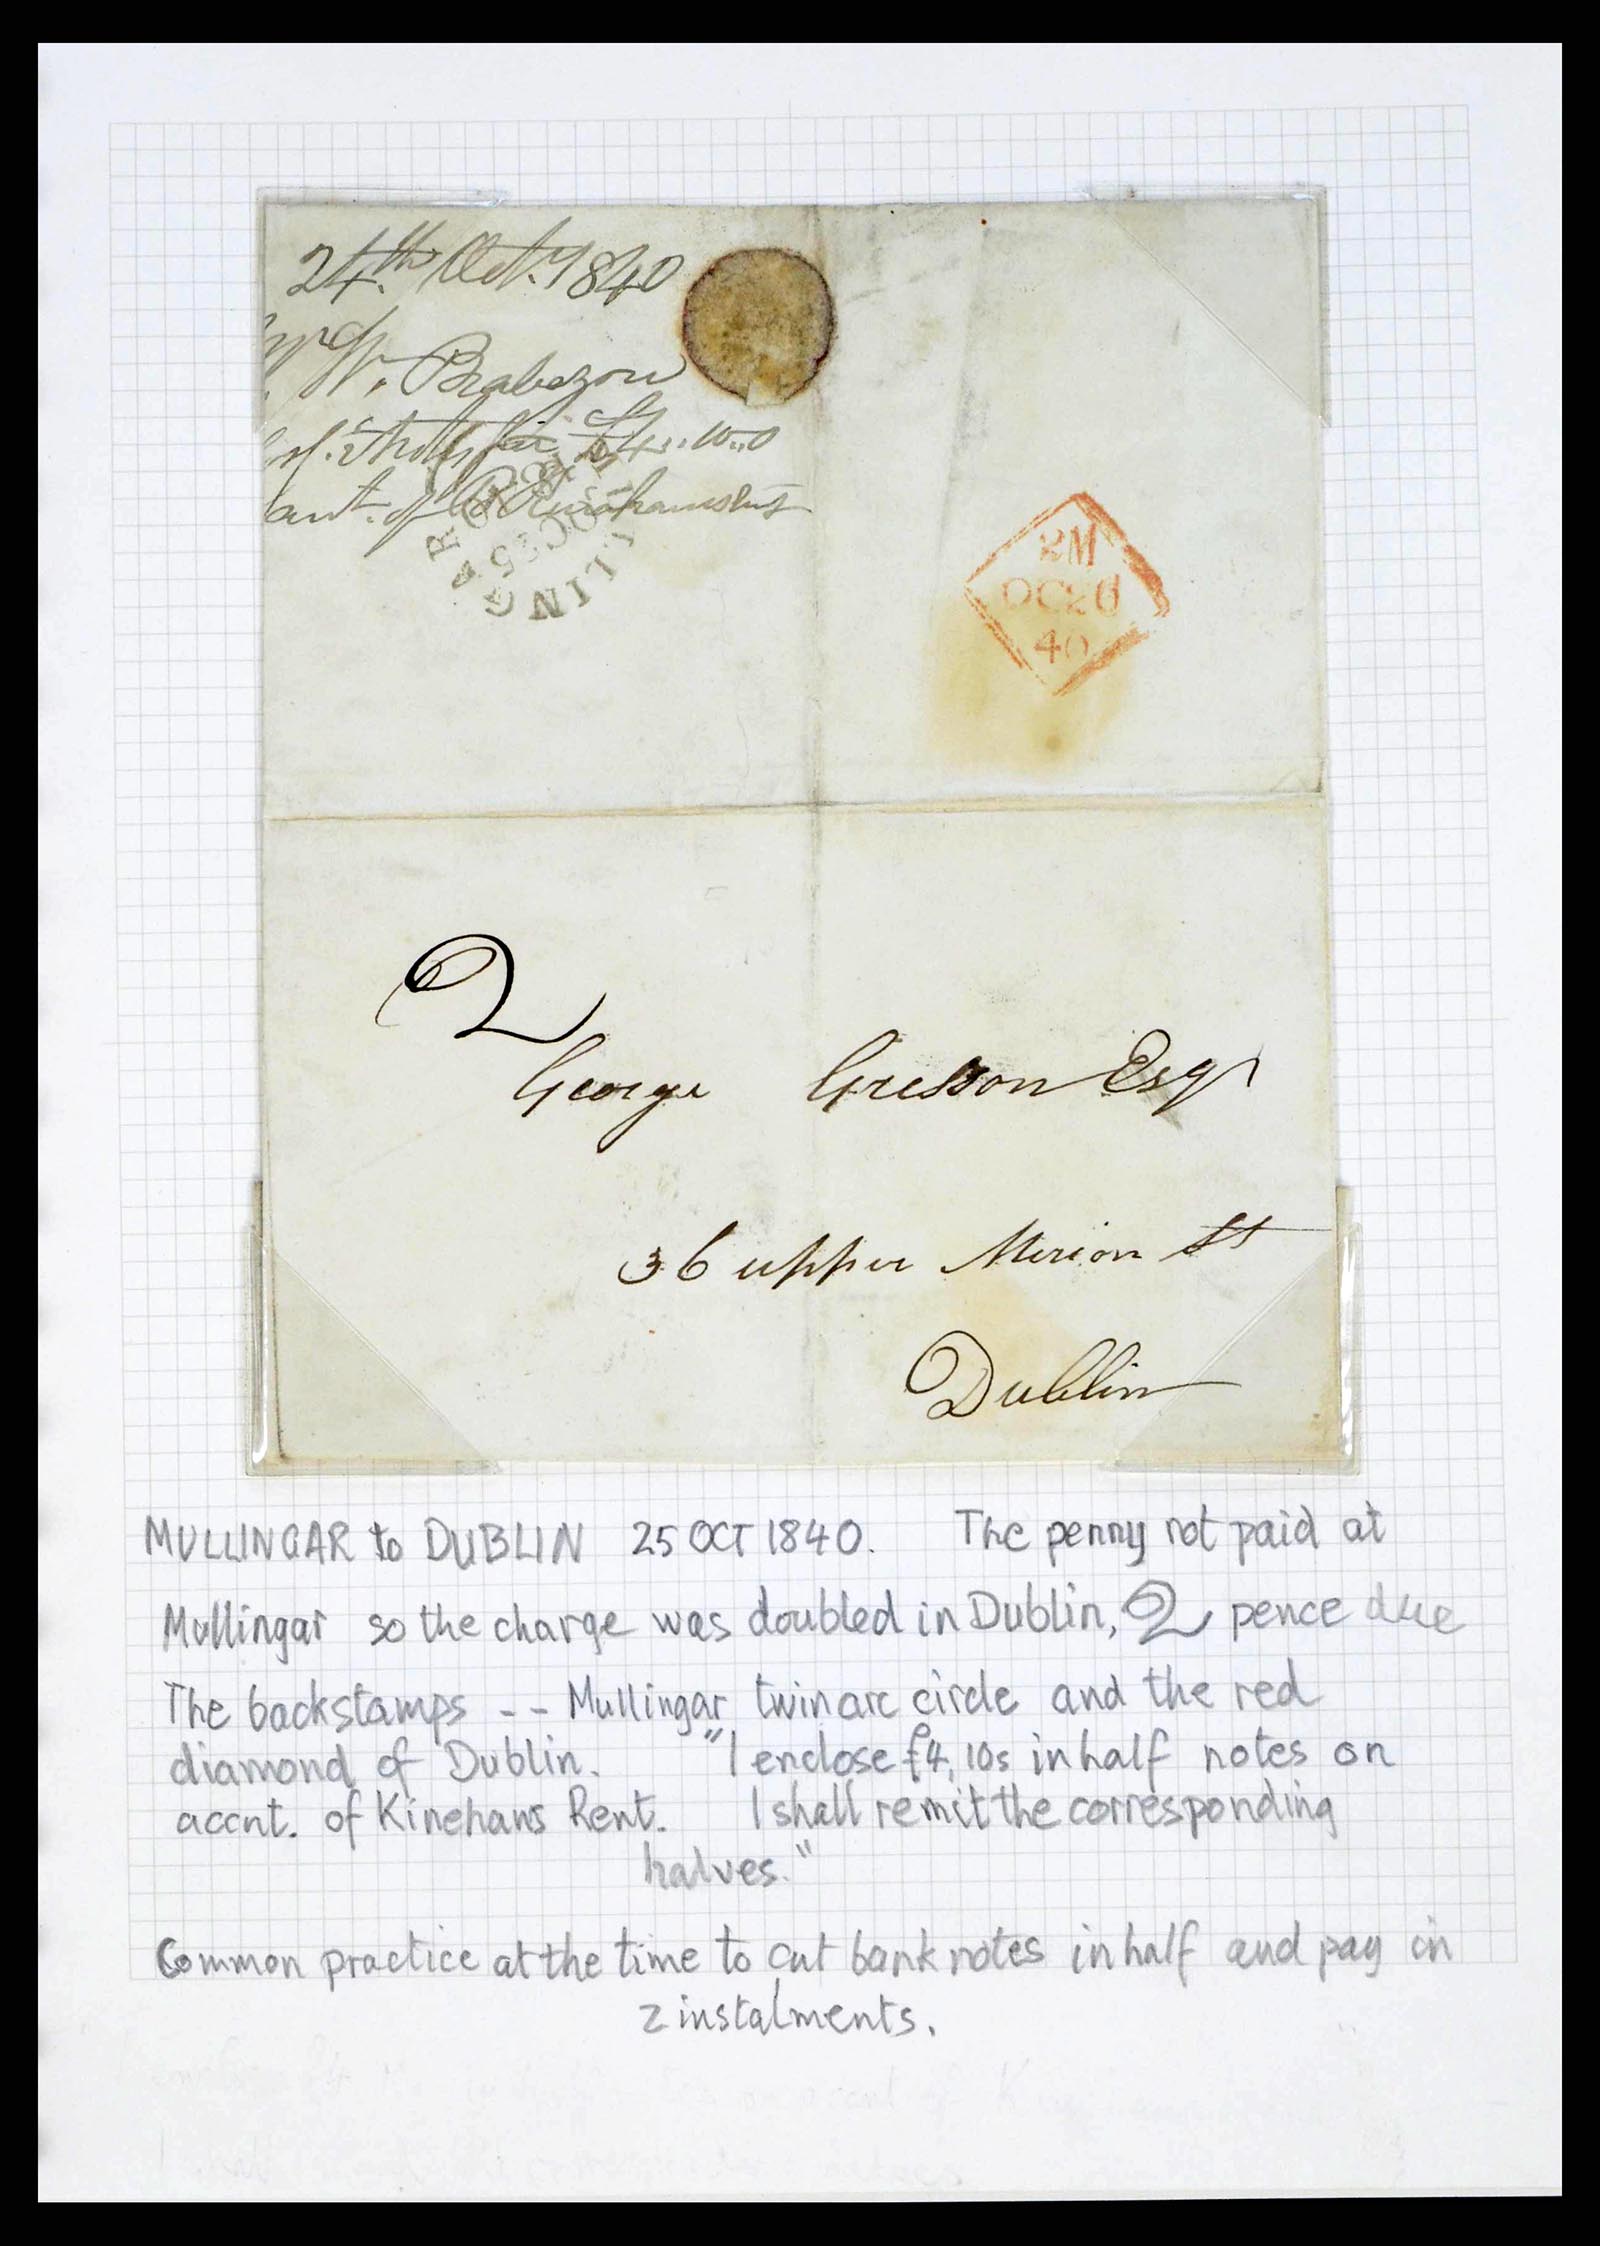 24th Oct. 1840
W. Brabazon
£4..10..0
of
MULLINGAR
OC 25
2M
OC26
40
2
George Gresson Esqr
36 upper Merion St
Dublin
MULLINGAR to DUBLIN 25 OCT 1840. The penny not paid at
Mullingar so the charge was doubled in Dublin, 2 pence due
The backstamps -- Mullingar twin arc circle and the red
diamond of Dublin. "I enclose £4, 10s in half notes on
accnt. of Kinehans Rent. I shall remit the corresponding
halves."
Common practice at the time to cut bank notes in half and pay in
2 instalments.